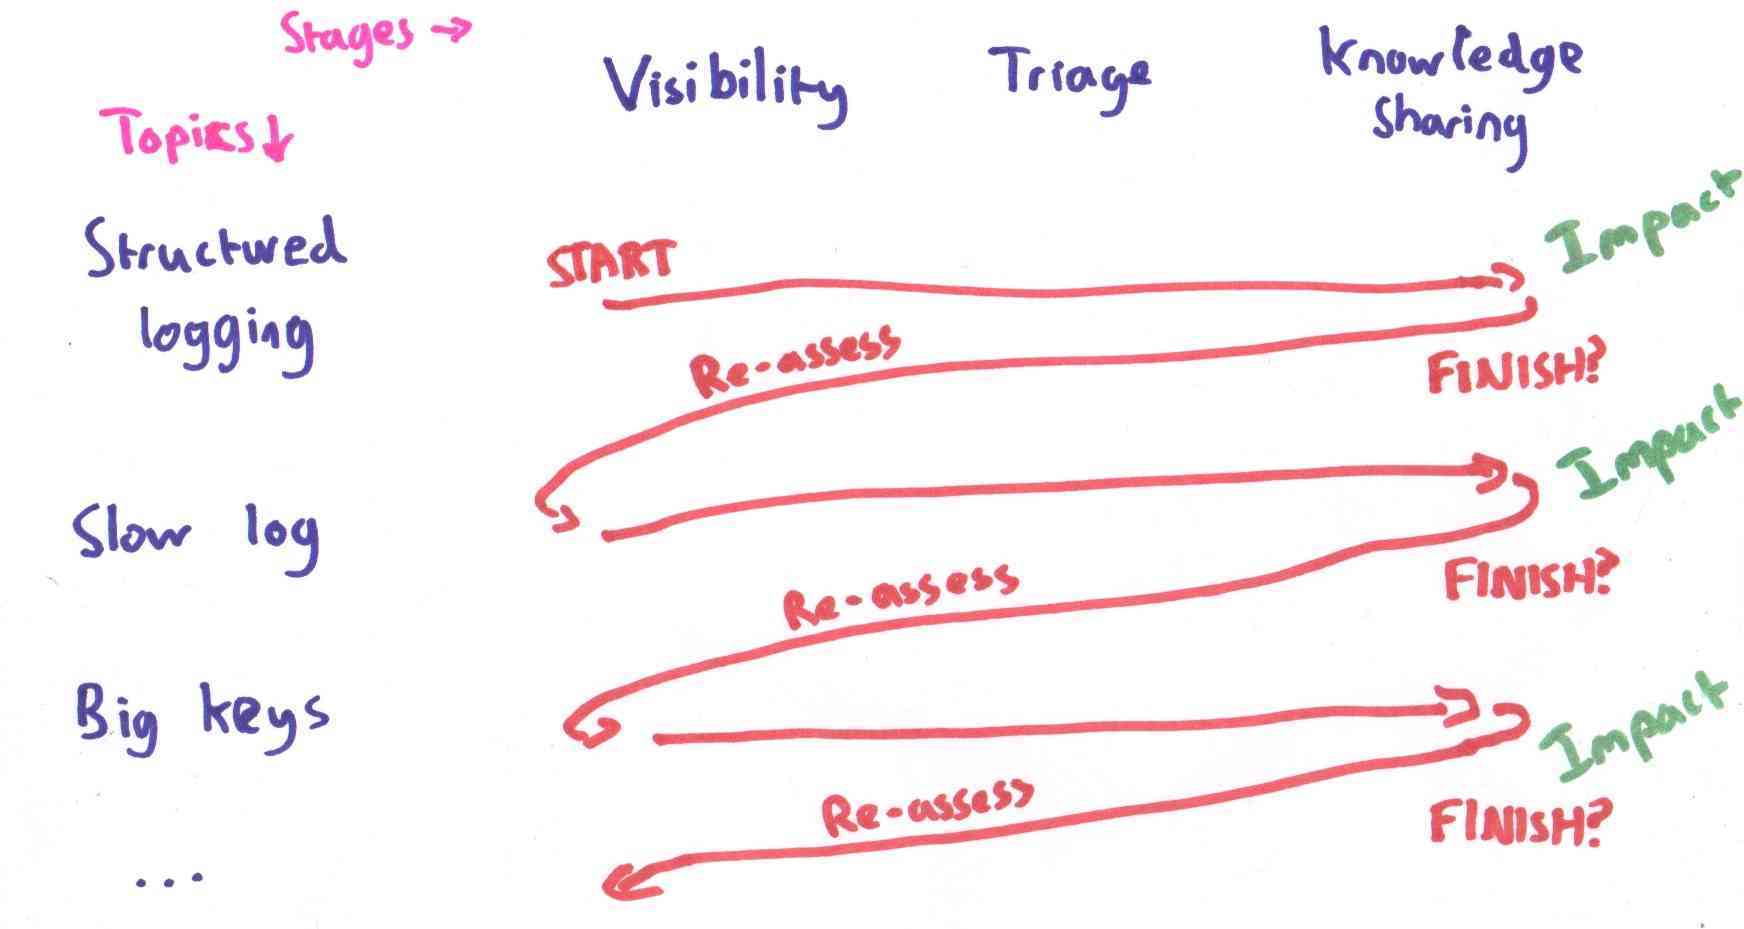 Stages →
Visibility
Triage
Knowledge
Sharing
Topics ↓
Structured
logging
START
Impact
Re-assess
FINISH?
Slow log
Impact
Re-assess
FINISH?
Big keys
Impact
Re-assess
FINISH?
...